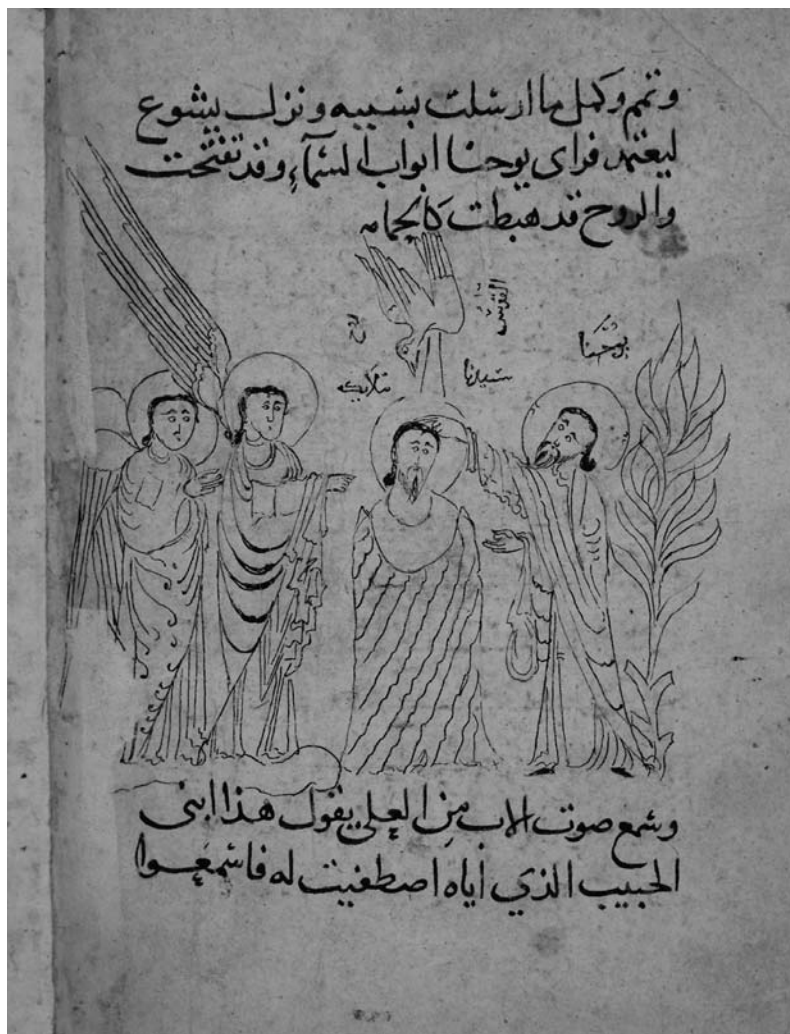 وتمم وكمل ما ارسلت بسببه ونزل يشوع
ليعتمد فراى يوحنا ابواب السمآء وقد تفتحت
والروح قد هبطت كالحمامه
روح
القدس
يوحنا
سيدنا
ملايكه
وسمع صوت الاب من العلى يقول هذا ابنى
الحبيب الذي اياه اصطفيت له فاسمعوا